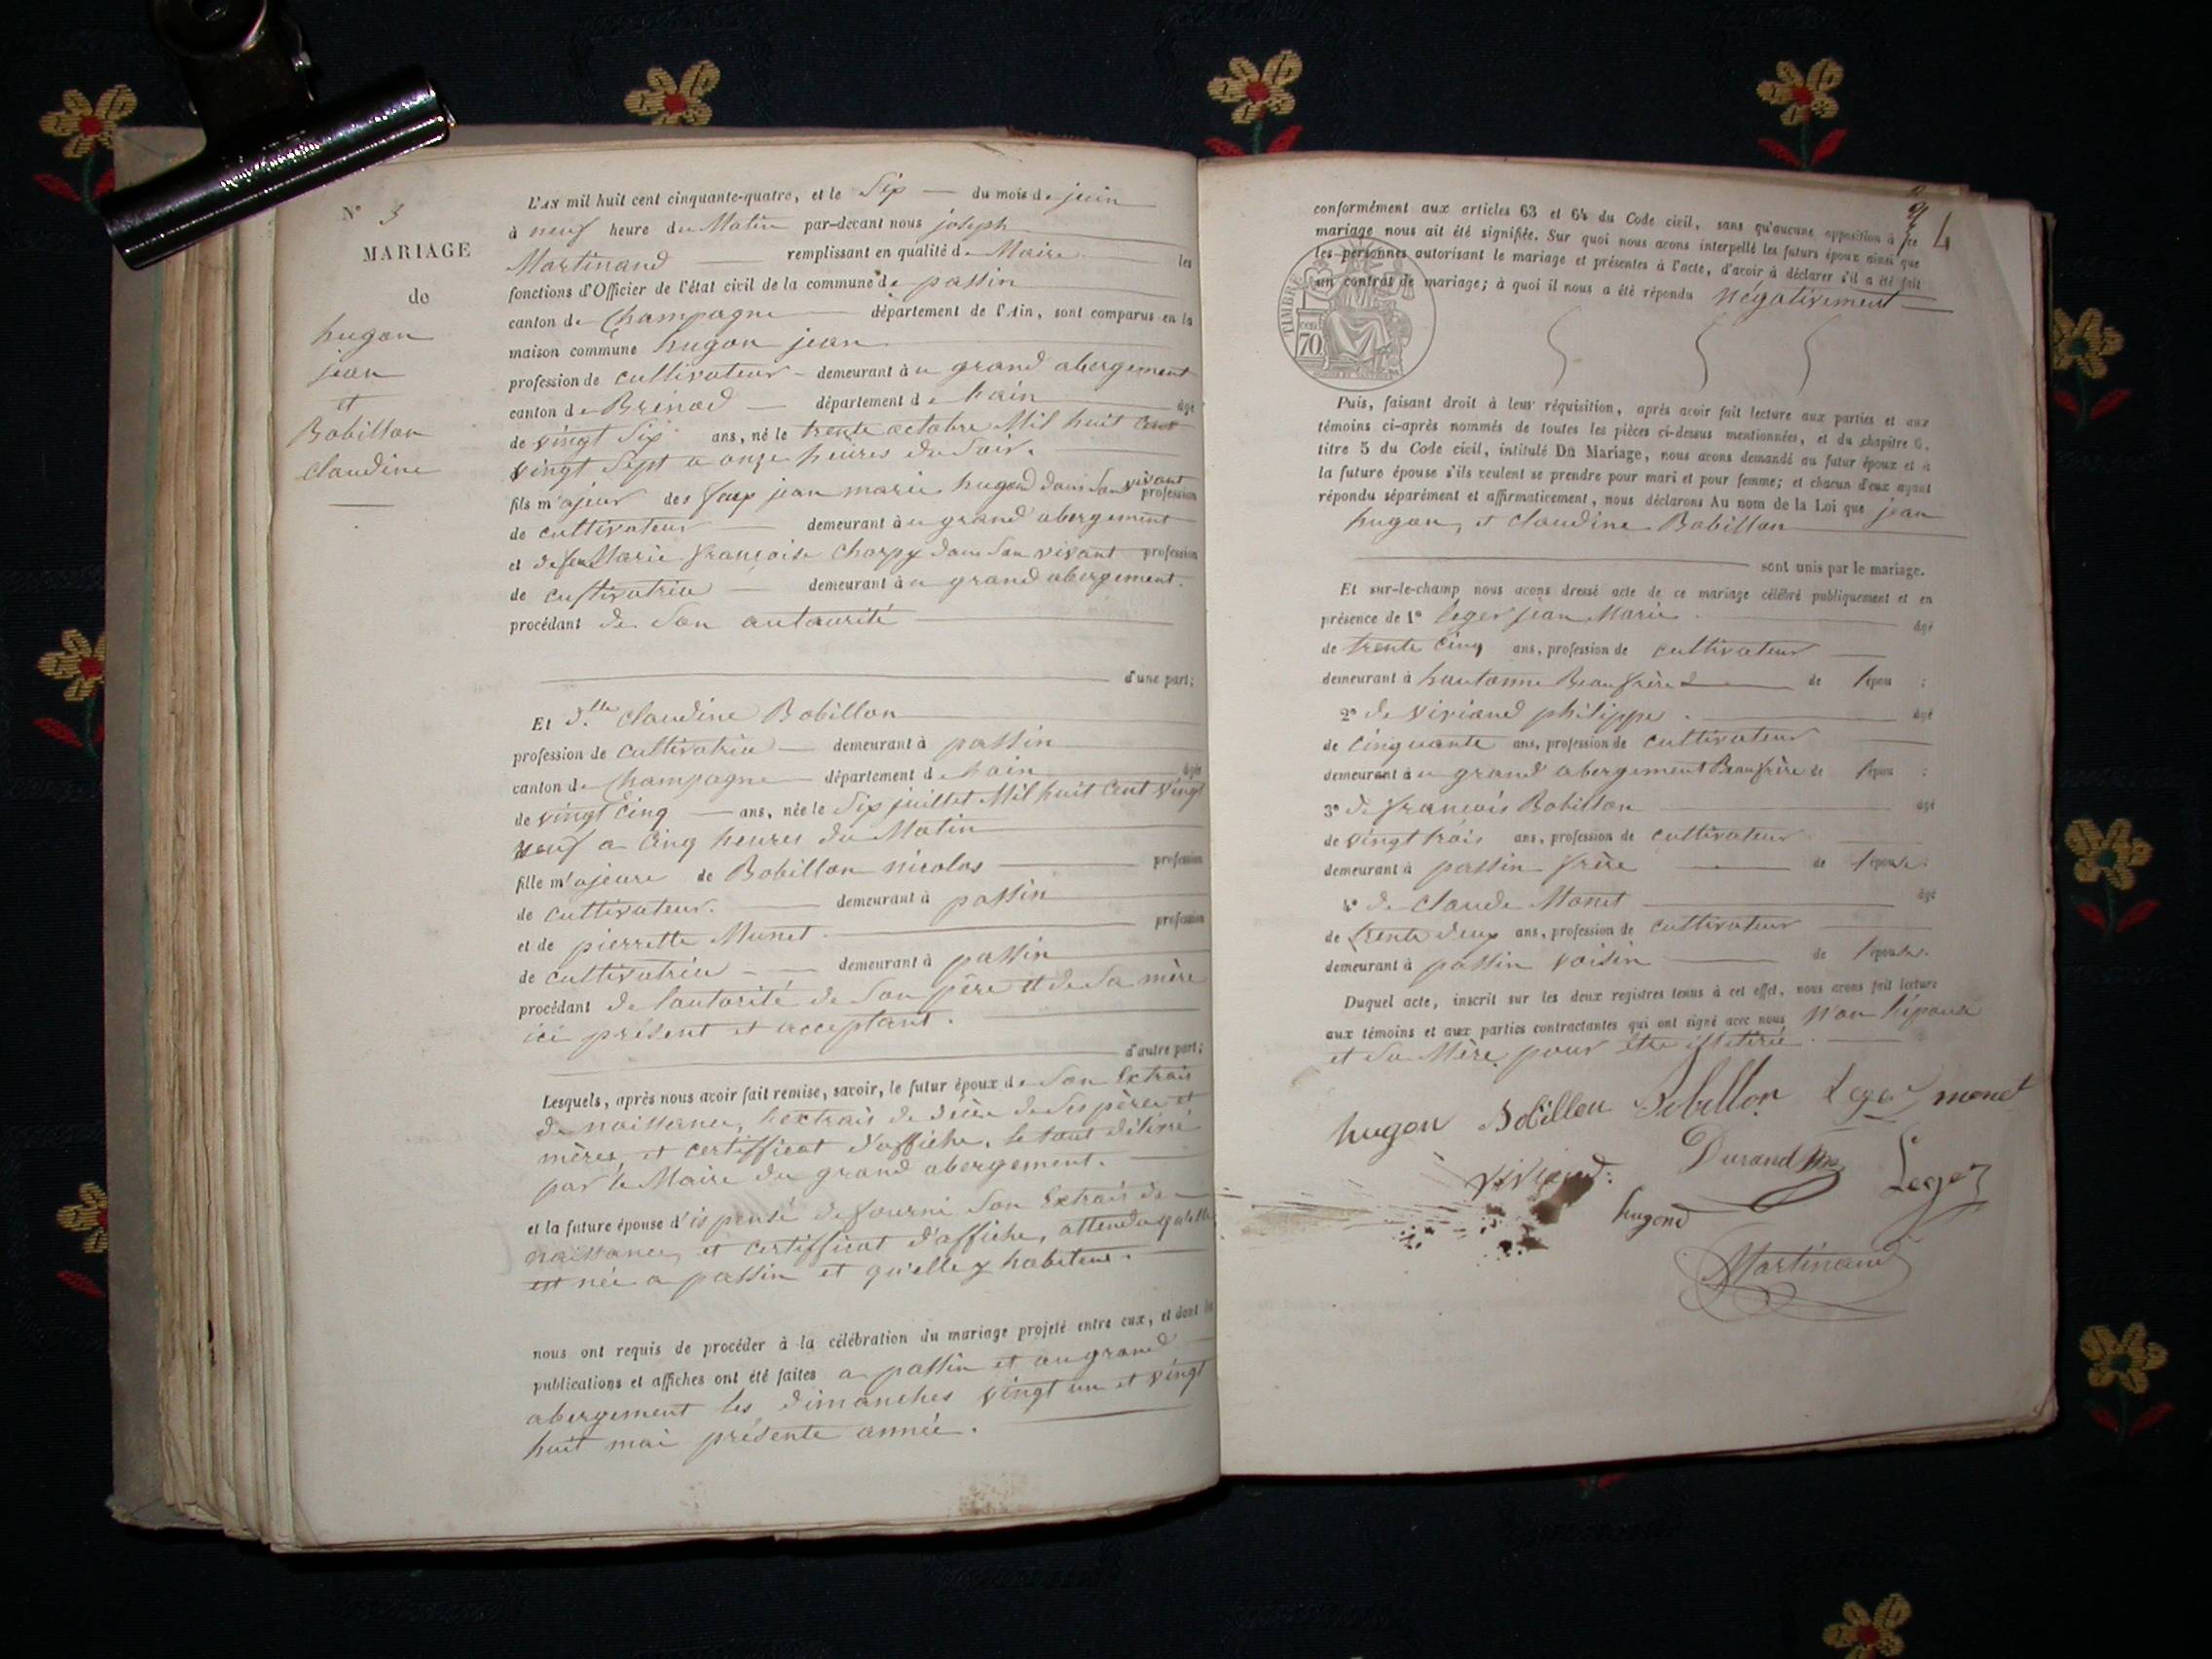 N° 3
MARIAGE
de
hugon
jean
et
Bobillon
claudine
L'AN mil huit cent cinquante-quatre, et le Six du mois de juin
à neuf heure du Matin par-devant nous joseph
Martinand remplissant en qualité de Maire les
fonctions d'Officier de l'état civil de la commune de passin
canton de Champagne département de l'Ain, sont comparus en la
maison commune hugon jean
profession de cultivateur demeurant à u grand abergement
canton de Brénod département de lain âgé
de vingt Six ans, né le trente octobre Mil huit Cent
vingt Sept a onze heures du Soir.
fils majeur des feux jean marie hugond dans Son vivant profession
de cultivateur demeurant à u grand abergement
et de feu Marie françoise Charpy dans Son vivant profession
de cultivatrice demeurant à u grand abergement.
procédant de Son autaurité
d'une part;
Et d.lle Claudine Bobillon
profession de cultivatrice demeurant à passin
canton de Champagne département de lain âgée
de vingt Cinq ans, née le Six juillet Mil huit Cent vingt
neuf a Cinq heures du Matin
fille majeure de Bobillon nicolas profession
de cultivateur. demeurant à passin
et de pierrette Munet. profession
de cultivatrice demeurant à passin
procédant de lautorité de Son père et de Sa mère
ici présent et acceptant.
d'autre part;
Lesquels, après nous avoir fait remise, savoir, le futur époux de Son Extrais
de naissance, lextrais de décès de Ses pères et
mères, et certifficat d'affiche, le tout délivré
par le Maire du grand abergement.
et la future épouse d'ispensé de fourni Son Extrais de
naissance, et certifficat d'affiche, attendu qu'elle
est née a passin et qu'elle y habitent.
nous ont requis de procéder à la célébration du mariage projeté entre eux, et dont les
publications et affiches ont été faites a passin et au grand
abergement les dimanches vingt un et vingt
huit mai présente année.
4
conformément aux articles 63 et 64 du Code civil, sans qu'aucune opposition à ce
mariage nous ait été signifiée. Sur quoi nous avons interpellé les futurs époux ainsi que
les personnes autorisant le mariage et présentes à l'acte, d'avoir à déclarer s'il a été fait
un contrat de mariage; à quoi il nous a été répondu négativement
TIMBRE
cen
70
Puis, faisant droit à leur réquisition, après avoir fait lecture aux parties et aux
témoins ci-après nommés de toutes les pièces ci-dessus mentionnées, et du chapitre 6,
titre 5 du Code civil, intitulé Du Mariage, nous avons demandé au futur époux et à
la future épouse s'ils veulent se prendre pour mari et pour femme; et chacun d'eux ayant
répondu séparément et affirmativement, nous déclarons Au nom de la Loi que jean
hugon, et claudine Bobillon
sont unis par le mariage.
Et sur-le-champ nous avons dressé acte de ce mariage célébré publiquement et en
présence de 1° leger jean Marie. âgé
de trente Cinq ans, profession de cultivateur
demeurant à hautonne Beaufrère de lépou ;
2° de viviand philippe. âgé
de Cinquante ans, profession de cultivateur
demeurant à u grand abergement Beaufrère de lépou ;
3° de francois Bobillon âgé
de vingt trois ans, profession de cultivateur
demeurant à passin frère de lépouse.
4° de claude Monet âgé
de trente deux ans, profession de cultivateur
demeurant à passin voisin de lépouse.
Duquel acte, inscrit sur les deux registres tenus à cet effet, nous avons fait lecture
aux témoins et aux parties contractantes qui ont signé avec nous Non l'épouse
et Sa Mère, pour être illétéré.
hugon Bobillon Bobillon Leger monet
viviand. Durand Leger
hugond
Martinand